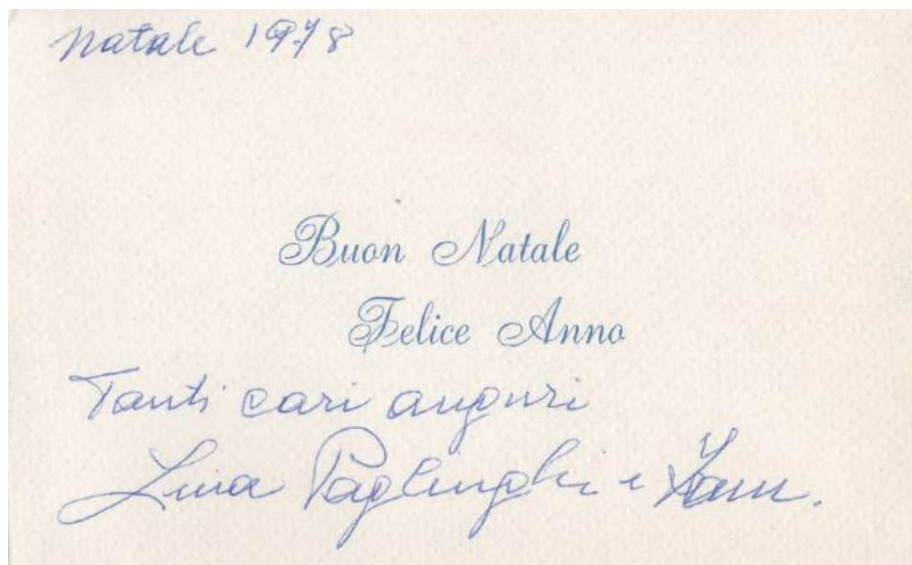 Natale 1978
Buon Natale
Felice Anno
Tanti cari auguri
Lina e Fam.